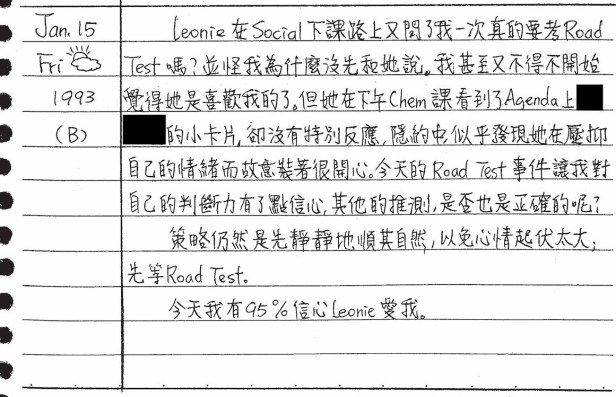 Jan. 15 Leonie 在 Social 下課路上又問了我一次真的要考 Road
Fri Test 嗎？並怪我為什麼沒先和她說。我甚至又不得不開始
1993 覺得她是喜歡我的了。但她在下午 Chem 課看到了 Agenda 上
(B) 的小卡片，卻沒有特別反應，隱約中似乎發現她在壓抑
自己的情緒而故意裝著很開心。今天的 Road Test 事件讓我對
自己的判斷力有了點信心，其他的推測，是否也是正確的呢？
策略仍然是先靜靜地順其自然，以免心情起伏太大；
先等 Road Test.
今天我有95%信心 Leonie 愛我。